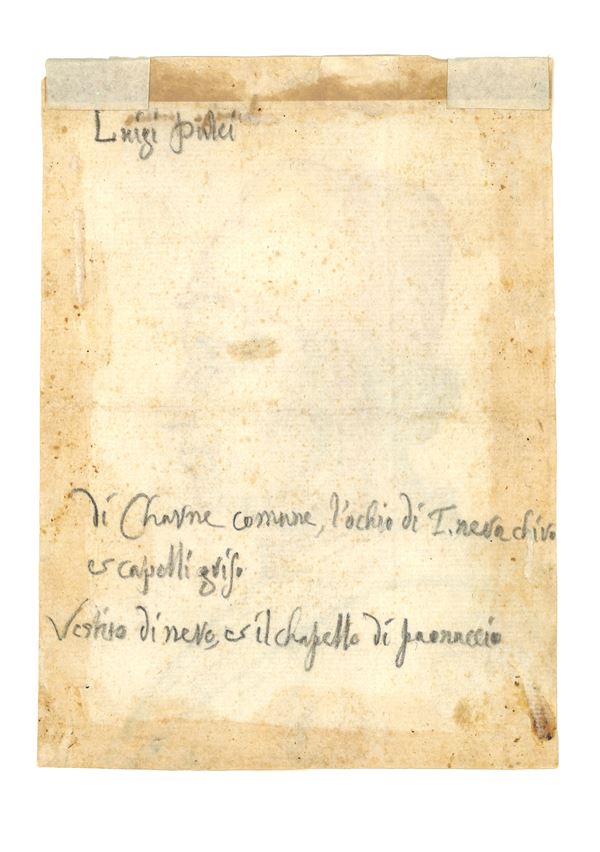 Luigi pulci
di Charne comune, l'ochio di T. nera chiro
et capelli grisi
Vestito di nero, et il chapello di paonaccio